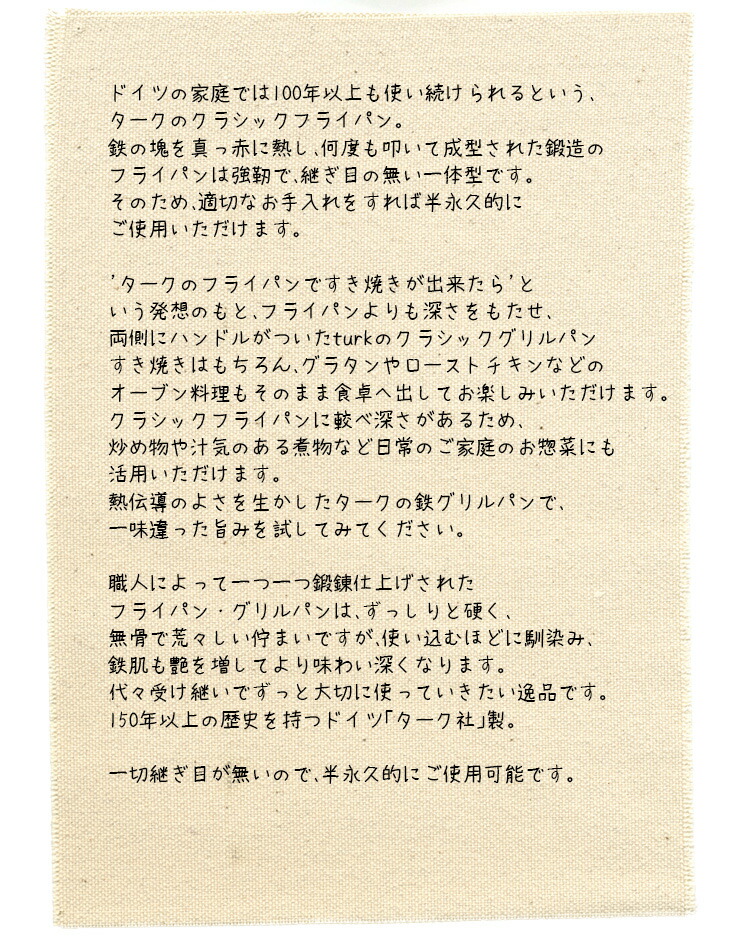 ドイツの家庭では100年以上も使い続けられるという、
タークのクラシックフライパン。
鉄の塊を真っ赤に熱し、何度も叩いて成型された鍛造の
フライパンは強靭で、継ぎ目の無い一体型です。
そのため、適切なお手入れをすれば半永久的に
ご使用いただけます。
'タークのフライパンですき焼きが出来たら'と
いう発想のもと、フライパンよりも深さをもたせ、
両側にハンドルがついたturkのクラシックグリルパン
すき焼きはもちろん、グラタンやローストチキンなどの
オーブン料理もそのまま食卓へ出してお楽しみいただけます。
クラシックフライパンに較べ深さがあるため、
炒め物や汁気のある煮物など日常のご家庭のお惣菜にも
活用いただけます。
熱伝導のよさを生かしたタークの鉄グリルパンで、
一味違った旨みを試してみてください。
職人によって一つ一つ鍛錬仕上げされた
フライパン・グリルパンは、ずっしりと硬く、
無骨で荒々しい佇まいですが、使い込むほどに馴染み、
鉄肌も艶を増してより味わい深くなります。
代々受け継いでずっと大切に使っていきたい逸品です。
150年以上の歴史を持つドイツ「ターク社」製。
一切継ぎ目が無いので、半永久的にご使用可能です。